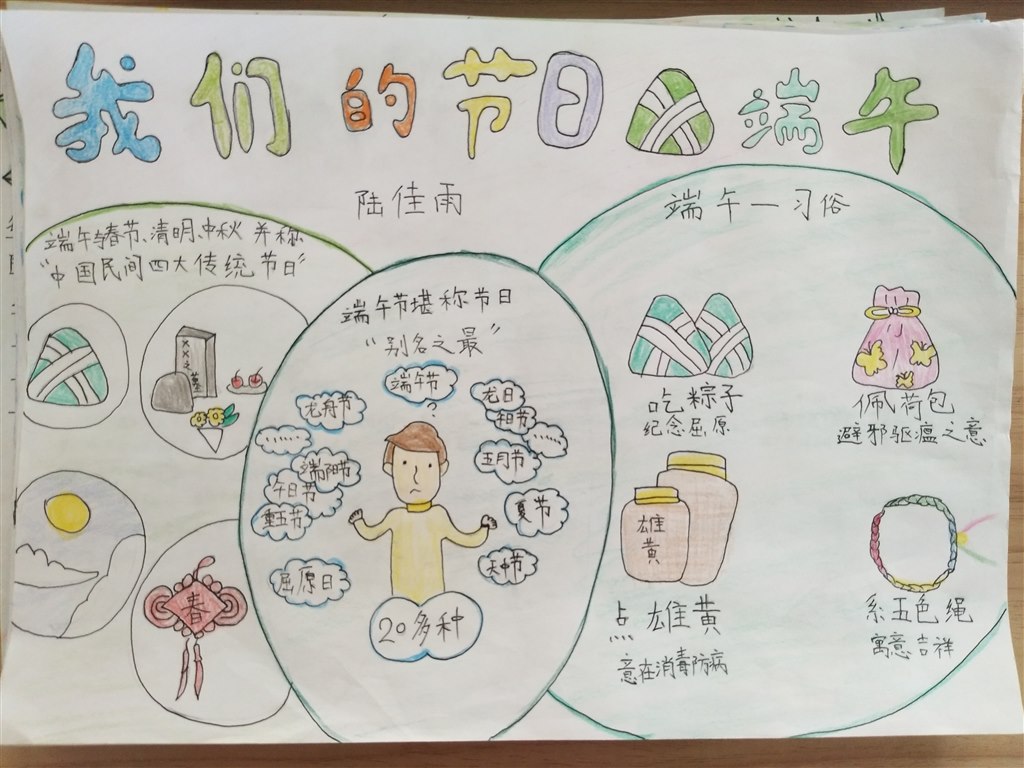 我们的节日端午
陆佳雨
端午与春节、清明、中秋并称
“中国民间四大传统节日”
××之墓
春
端午节堪称节日
“别名之最”
端午节
?
龙舟节
龙日
午日节
......
......
端阳节
五月节
午日节
重五节
夏节
天中节
屈原日
20多种
端午—习俗
吃粽子
纪念屈原
佩荷包
避邪驱瘟之意
雄
黄
点雄黄
意在消毒防病
系五色绳
寓意吉祥